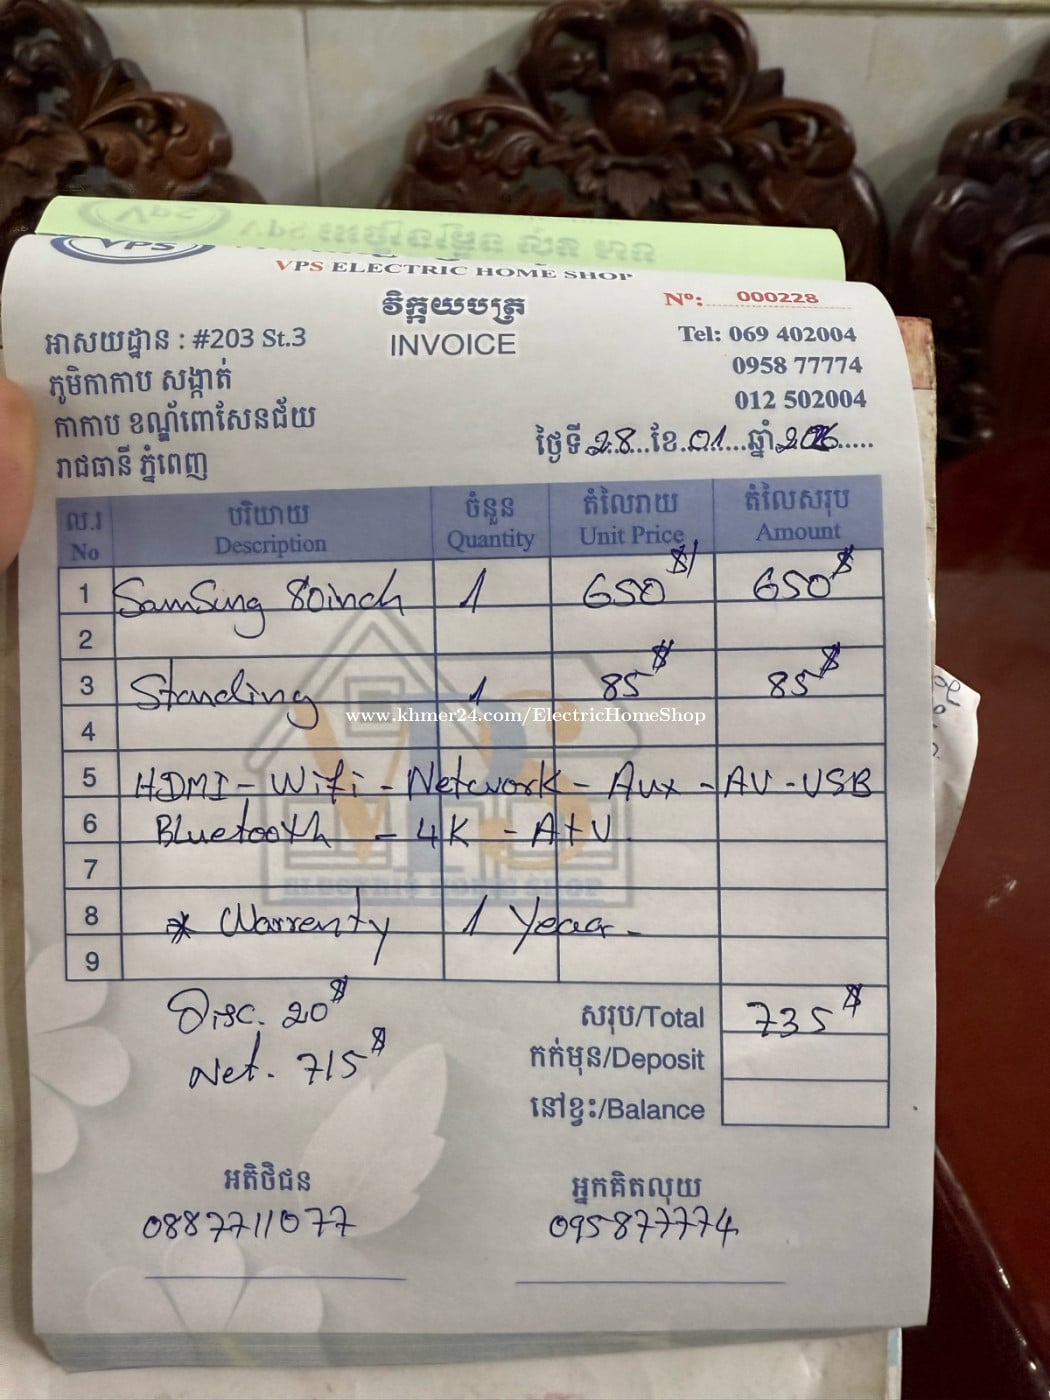 VPS
VPS ELECTRIC HOME SHOP
វិក្កយបត្រ
INVOICE
Nº: 000228
អាសយដ្ឋាន : #203 St.3
ភូមិកាកាប សង្កាត់
កាកាប ខណ្ឌ័ពោសែនជ័យ
រាជធានី ភ្នំពេញ
Tel: 069 402004
0958 77774
012 502004
ថ្ងៃទី 28 ខែ 01 ឆ្នាំ 2026
ល.រ បរិយាយ ចំនួន តំលៃរាយ តំលៃសរុប
No Description Quantity Unit Price Amount
1 Samsung 80inch 1 650$/ 650$
2
3 Standing 1 85$ 85$
4
www.khmer24.com/ElectricHomeShop
VPS
5 HDMI - Wifi - Network - Aux - AV - USB
6 Bluetooth - 4K - AtV.
7
ELECTRIC HOME SHOP
8 * Warrenty 1 Year -
9
Disc. 20$
Net. 715$
សរុប/Total 735$
កក់មុន/Deposit
នៅខ្វះ/Balance
អតិថិជន
0887711077
អ្នកគិតលុយ
095877774